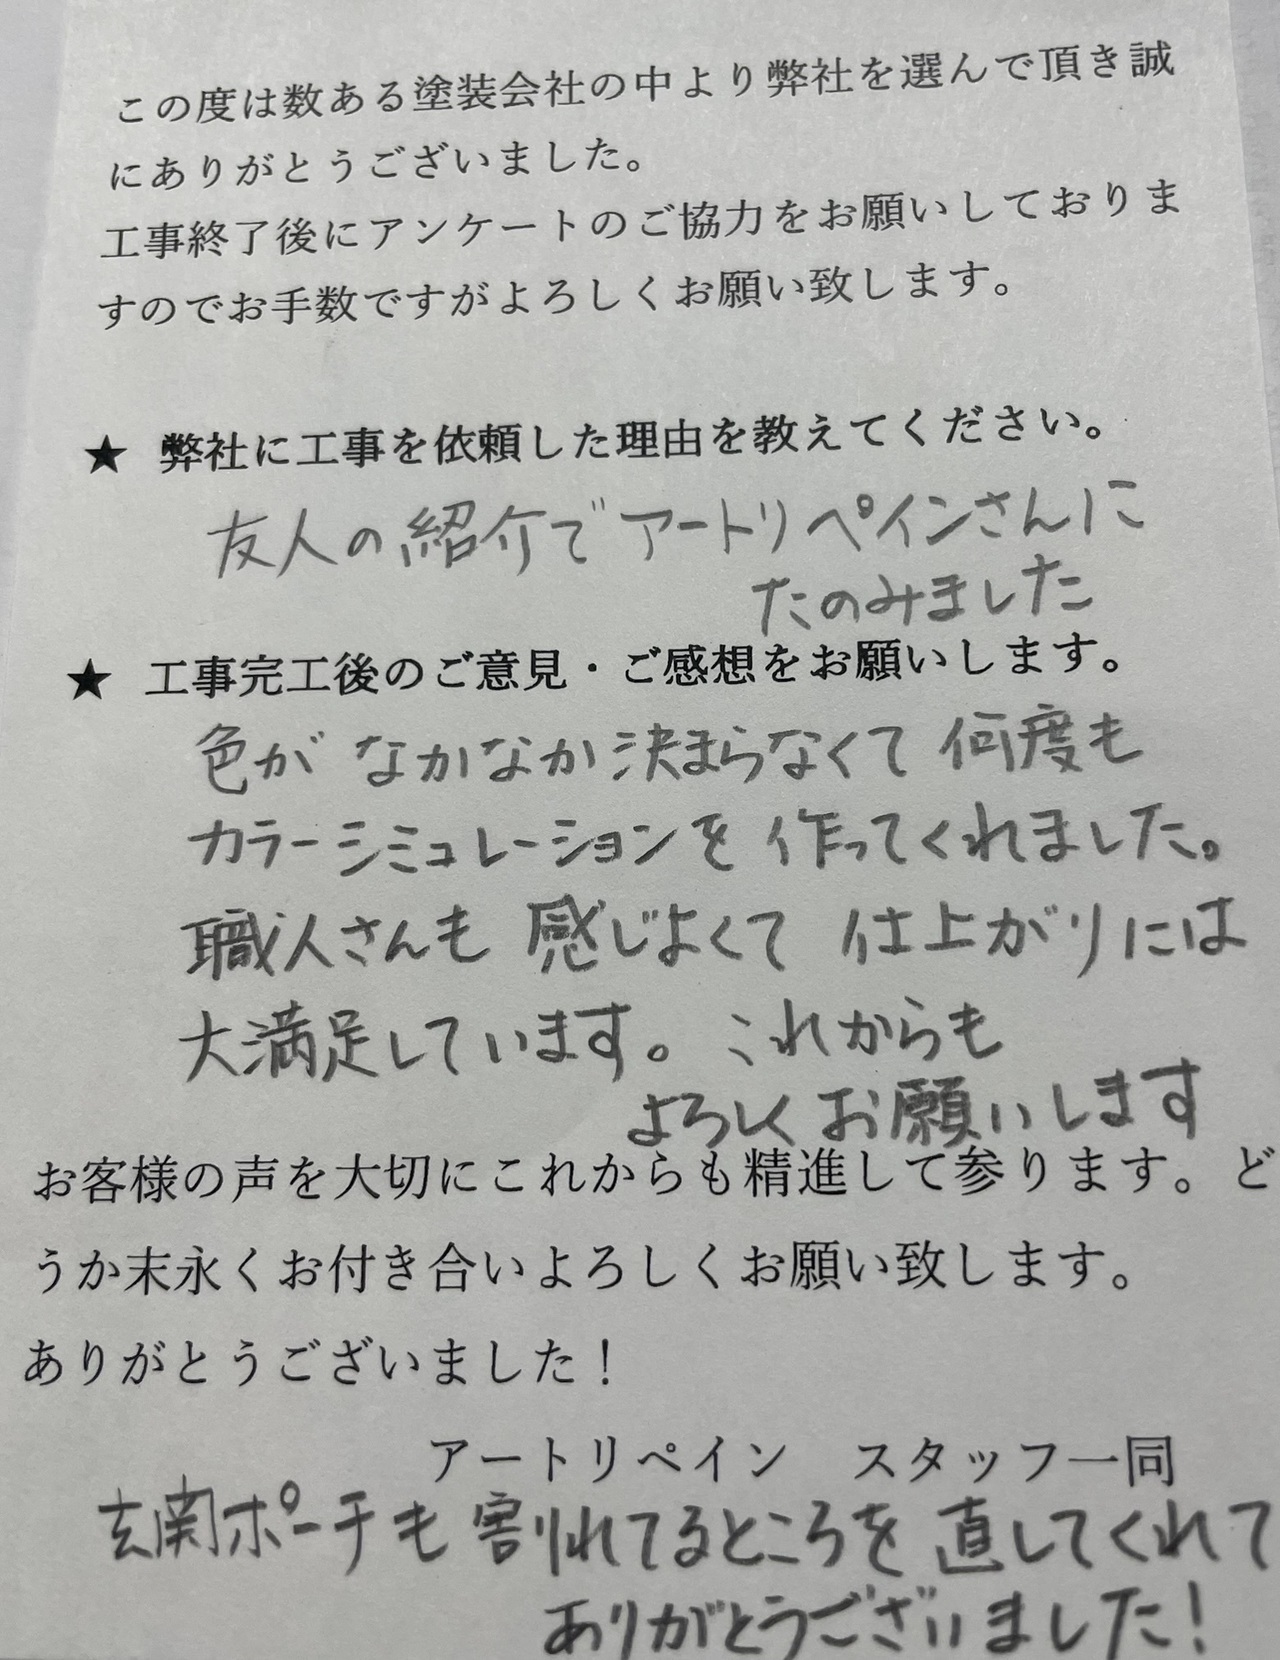 この度は数ある塗装会社の中より弊社を選んで頂き誠
にありがとうございました。
工事終了後にアンケートのご協力をお願いしておりま
すのでお手数ですがよろしくお願い致します。
★ 弊社に工事を依頼した理由を教えてください。
友人の紹介でアートリペインさんに
たのみました
★ 工事完工後のご意見・ご感想をお願いします。
色が なかなか決まらなくて 何度も
カラーシミュレーションを 作ってくれました。
職人さんも 感じよくて 仕上がりには
大満足しています。これからも
よろしくお願いします
お客様の声を大切にこれからも精進して参ります。ど
うか末永くお付き合いよろしくお願い致します。
ありがとうございました！
アートリペイン　スタッフ一同
玄関ポーチも 割れてるところを 直してくれて
ありがとうございました!